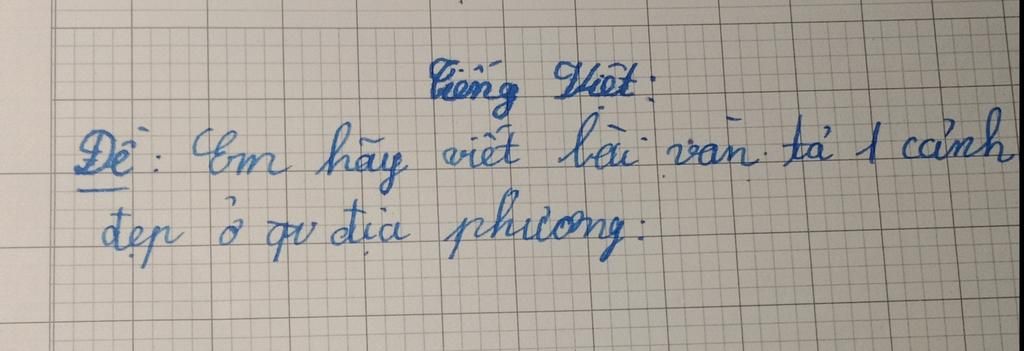 Tiếng Việt:
Đề: Em hãy viết bài văn tả 1 cảnh
đẹp ở địa phương: